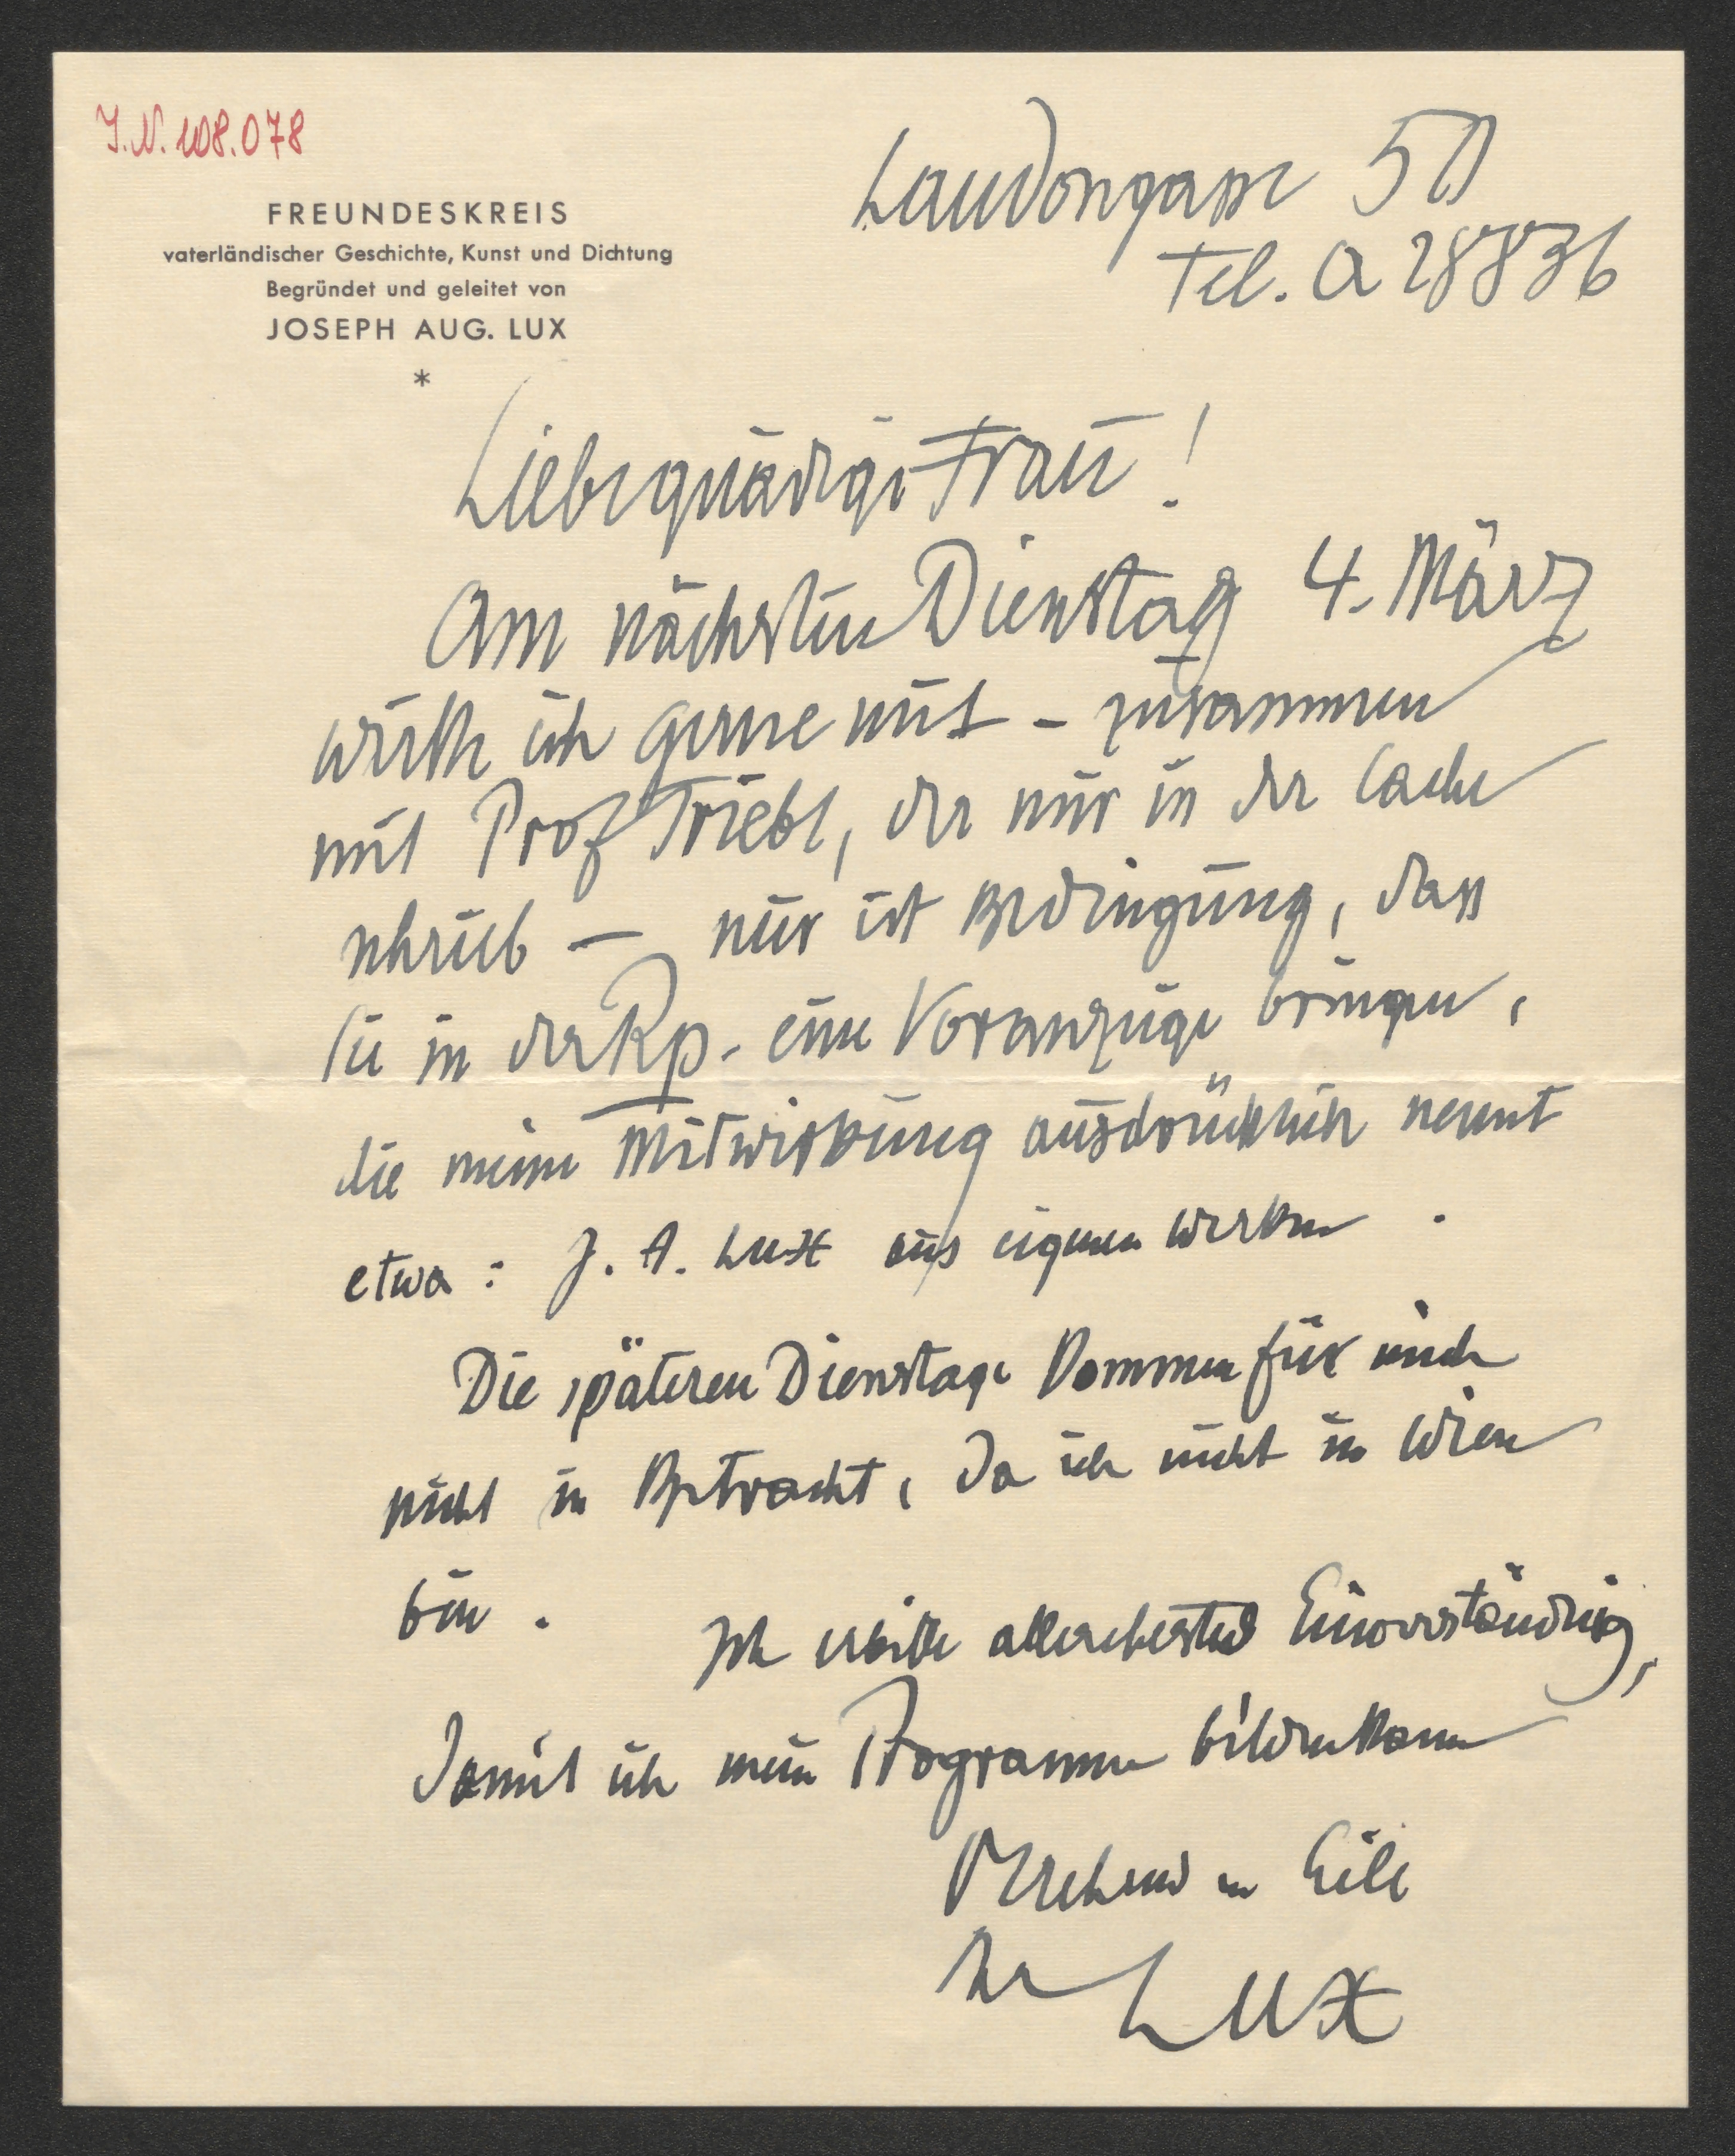 J.N. 108.078
FREUNDESKREIS
vaterländischer Geschichte, Kunst und Dichtung
Begründet und geleitet von
JOSEPH AUG. LUX
*
Laudongasse 50
Tel. A 28836
Liebe gnädige Frau!
Am nächsten Dienstag 4. März
wirke ich gerne mit – zusammen
mit Prof Triebl, der mir in der Sache
schrieb – nur ist Bedingung, dass
Sie in der Rp. eine Voranzeige bringen,
die meine Mitwirkung ausdrücklich nennt
etwa: J. A. Lux aus eigenen Werken.
Die späteren Dienstage kommen für mich
nicht in Betracht, da ich nicht in Wien
bin.
Ich erbitte allerehestens Einverständnis,
damit ich mein Programm bilden kann
in Eile
Ihr Lux